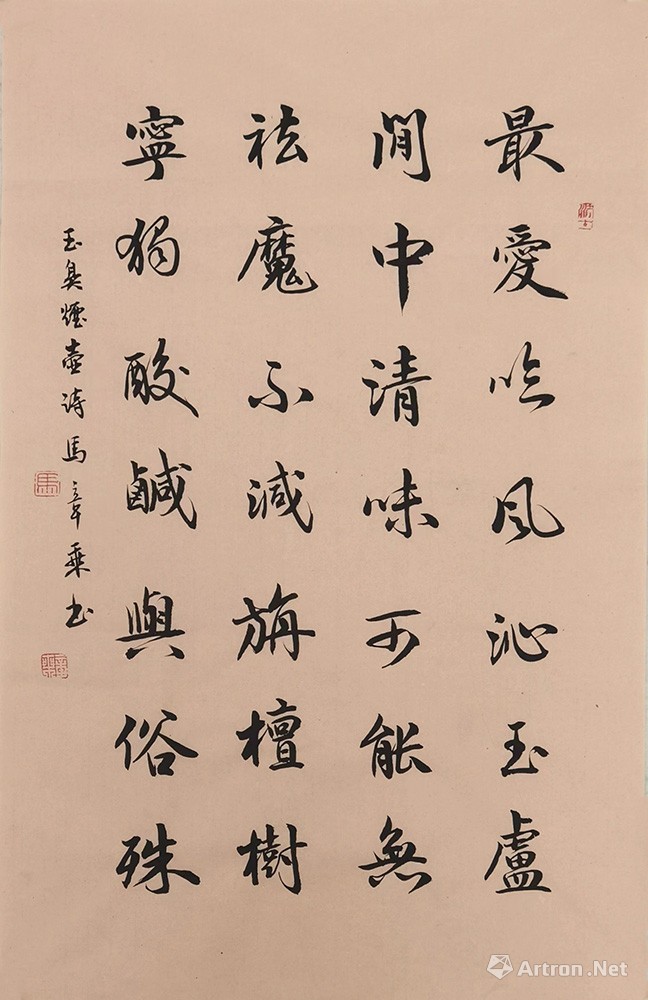 最愛吟風沁玉盧
閒中清味可能無
祛魔不減旃檀樹
寧獨酸鹹與俗殊
玉臭煙壺詩馬章乘書
馬
Artron.Net